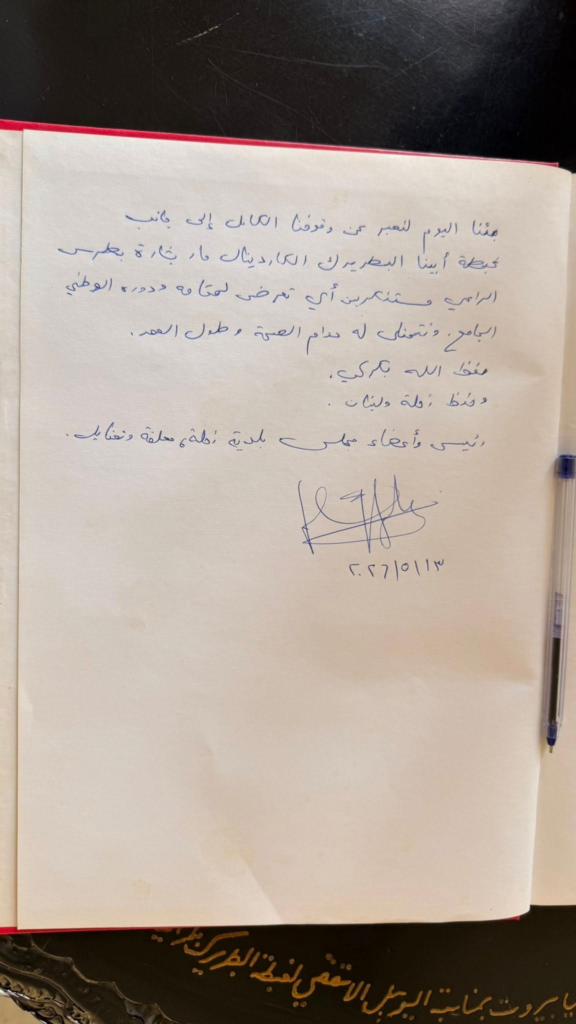 جئنا اليوم لنعبر عن وقوفنا الكامل إلى جانب
غبطة أبينا البطريرك الكاردينال مار بشارة بطرس
الراعي مستنكرين أي تعرض لمقامه ودوره الوطني
الجامع. ونتمنى له دوام الصحة وطول العمر.
حفظ الله بكركي.
وحفظ زحلة ولبنان.
رئيس وأعضاء مجلس بلدية زحلة، معلقة وتعنايل.
٢٠٢٦/٥/١٣
يا بيروت بمناسبة اليوبيل الاسقفي لغبطة البطريرك